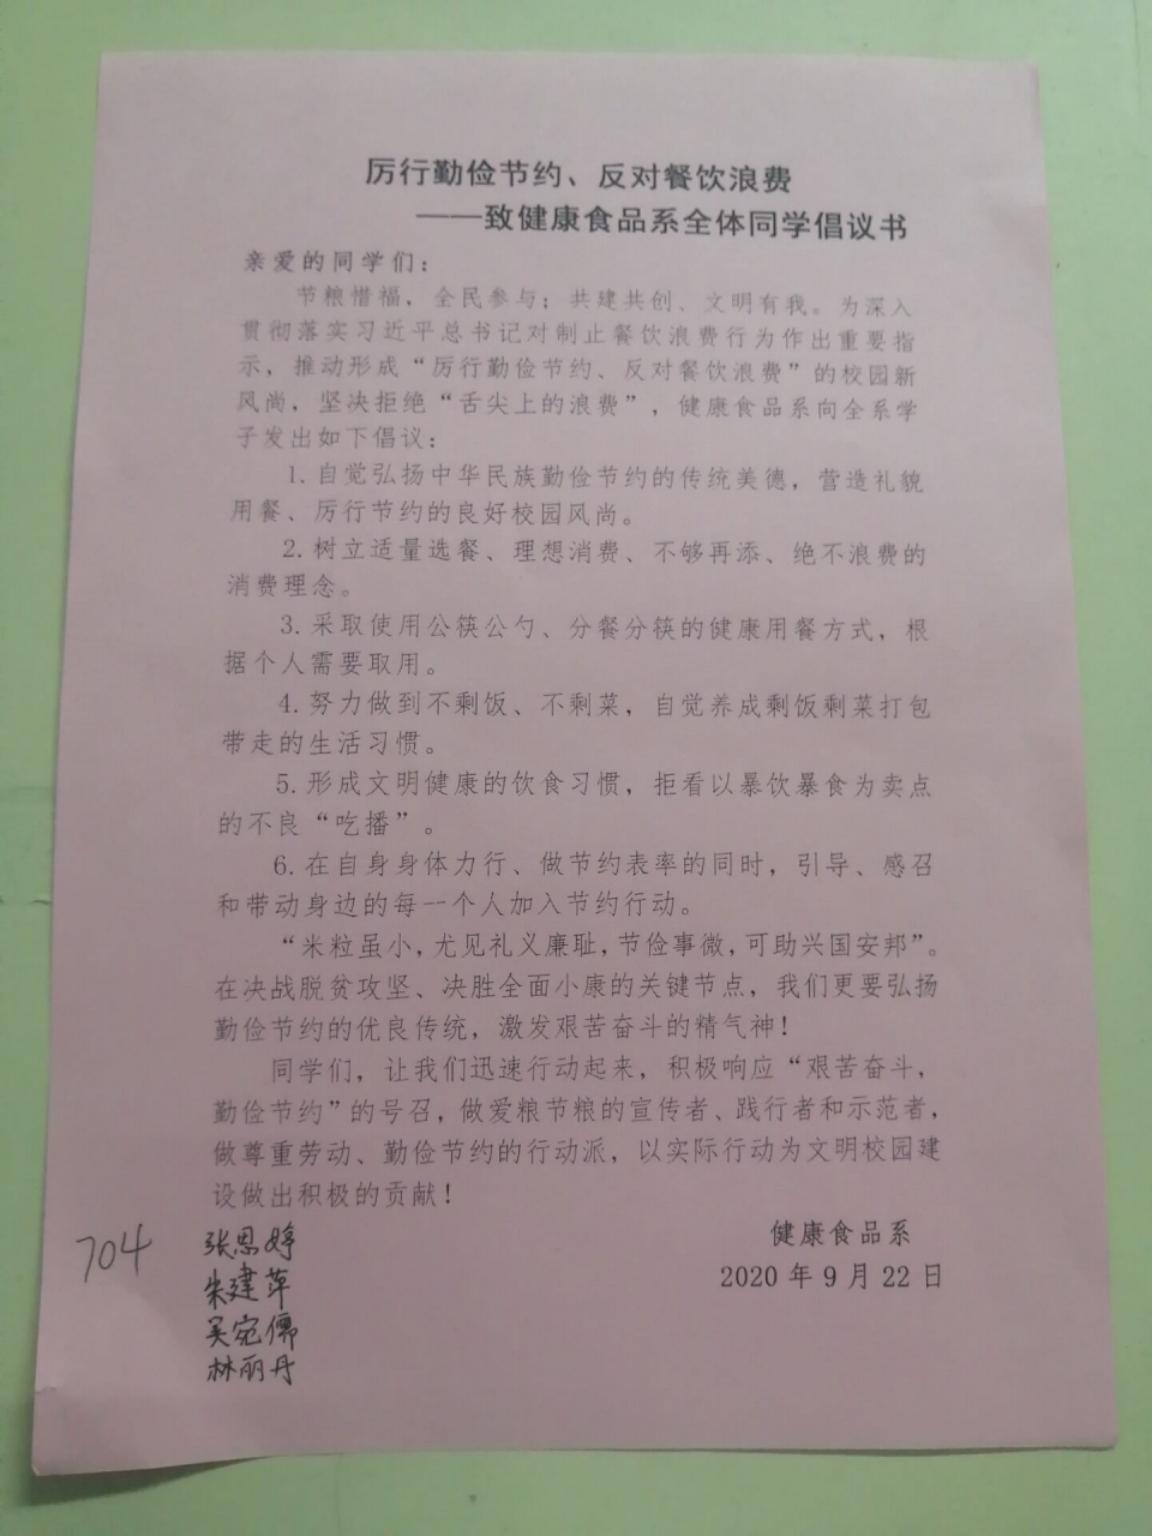 厉行勤俭节约、反对餐饮浪费
——致健康食品系全体同学倡议书
亲爱的同学们：
节粮惜福，全民参与；共建共创、文明有我。为深入
贯彻落实习近平总书记对制止餐饮浪费行为作出重要指
示，推动形成“厉行勤俭节约、反对餐饮浪费”的校园新
风尚，坚决拒绝“舌尖上的浪费”，健康食品系向全系学
子发出如下倡议：
1.自觉弘扬中华民族勤俭节约的传统美德，营造礼貌
用餐、厉行节约的良好校园风尚。
2.树立适量选餐、理想消费、不够再添、绝不浪费的
消费理念。
3.采取使用公筷公勺、分餐分筷的健康用餐方式，根
据个人需要取用。
4.努力做到不剩饭、不剩菜，自觉养成剩饭剩菜打包
带走的生活习惯。
5.形成文明健康的饮食习惯，拒看以暴饮暴食为卖点
的不良“吃播”。
6.在自身身体力行、做节约表率的同时，引导、感召
和带动身边的每一个人加入节约行动。
“米粒虽小，尤见礼义廉耻，节俭事微，可助兴国安邦”。
在决战脱贫攻坚、决胜全面小康的关键节点，我们更要弘扬
勤俭节约的优良传统，激发艰苦奋斗的精气神！
同学们，让我们迅速行动起来，积极响应“艰苦奋斗，
勤俭节约”的号召，做爱粮节粮的宣传者、践行者和示范者，
做尊重劳动、勤俭节约的行动派，以实际行动为文明校园建
设做出积极的贡献！
健康食品系
2020年9月22日
704
张恩婷
朱建萍
吴宛儒
林丽丹